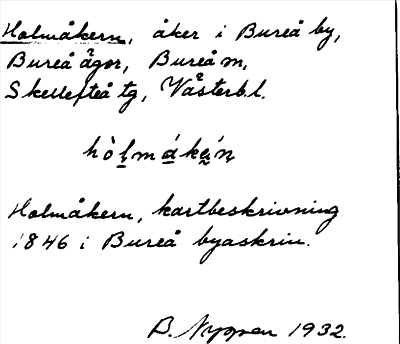 Holmåkern, åker i Bureå by,
Bureå ägor, Bureå m,
Skellefteå tg, Västerb.l.
hòl̥mákən
Holmåkern, kartbeskrivning
1846 i Bureå byaskrin.
B. Nyman 1932.